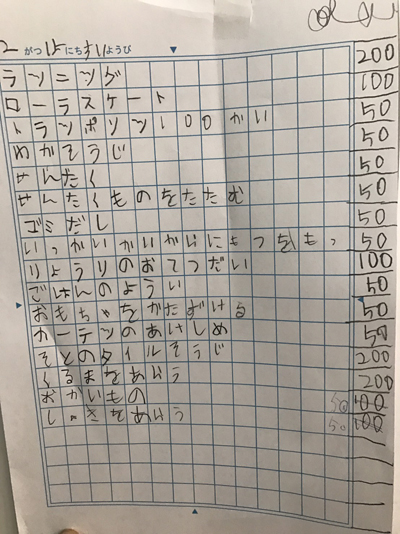 2がつ にちすいようび
ランニング 200
ローラスケート 100
トランポリン100かい 50
ゆかそうじ 50
せんたく 50
せんたくものをたたむ 50
ゴミだし 50
いっかいかいかいにもつをもっ 50
りょうりのおてつだい 100
ごはんのようい 50
おもちゃをかたずける 50
カーテンのあけしめ 50
そとのタイルそうじ 200
くるまをあらう 200
おかいもの 50 100
しょっきをあらう 50 100